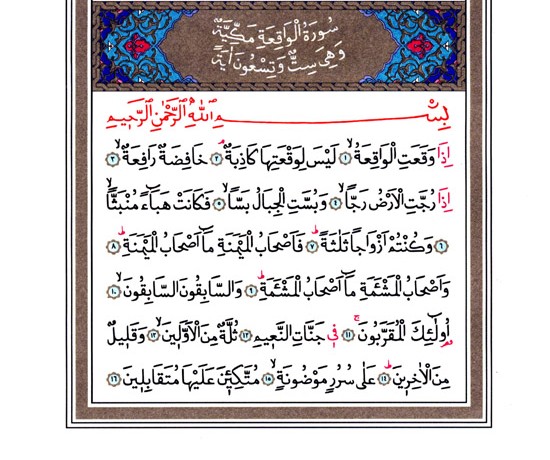 سُورَةُ الْوَاقِعَةِ مَكِّيَّةٌ
وَهِيَ سِتٌّ وَتِسْعُونَ اٰيَةً
بِسْمِ اللهِ الرَّحْمٰنِ الرَّحِيمِ
اِذَا وَقَعَتِ الْوَاقِعَةُۙ ﴿١﴾ لَيْسَ لِوَقْعَتِهَا كَاذِبَةٌۢ ﴿٢﴾ خَافِضَةٌ رَافِعَةٌۙ ﴿٣﴾
اِذَا رُجَّتِ الْاَرْضُ رَجًّاۙ ﴿٤﴾ وَبُسَّتِ الْجِبَالُ بَسًّاۙ ﴿٥﴾ فَكَانَتْ هَبَٓاءً مُنْبَثًّاۙ
﴿٦﴾ وَكُنْتُمْ اَزْوَاجًا ثَلٰثَةًۜ ﴿٧﴾ فَاَصْحَابُ الْمَيْمَنَةِ مَٓا اَصْحَابُ الْمَيْمَنَةِۜ ﴿٨﴾
وَاَصْحَابُ الْمَشْـَٔمَةِ مَٓا اَصْحَابُ الْمَشْـَٔمَةِۜ ﴿٩﴾ وَالسَّابِقُونَ السَّابِقُونَۙ ﴿١٠﴾
اُو۬لٰٓئِكَ الْمُقَرَّبُونَۚ ﴿١١﴾ فِي جَنَّاتِ النَّعِيمِ ﴿١٢﴾ ثُلَّةٌ مِنَ الْاَوَّلِينَۙ ﴿١٣﴾ وَقَلِيلٌ
مِنَ الْاٰخِرِينَۜ ﴿١٤﴾ عَلٰى سُرُرٍ مَوْضُونَةٍۙ ﴿١٥﴾ مُتَّكِـِٔينَ عَلَيْهَا مُتَقَابِلِينَ ﴿١٦﴾